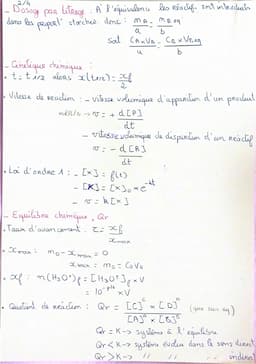 2/4
- Dosage par titrage : A l'équivalence les réactifs sont introduits
dans les proport° stoechio donc : nA/a = nB,eq/b
soit CA×VA/a = CB×VB,eq/b
- Cinétique chimique :
• t = t1/2 alors x(t1/2) = xf/2
• Vitesse de réaction : - vitesse volumique d'apparition d'un produit
mol/L/s → v = + d[P]/dt
- vitesse volumique de disparition d'un réactif
v = - d[R]/dt
• Loi d'ordre 1 : - [X] = f(t)
- [X] = [X]0 × e^-kt
- v = k[X]
- Equilibre chimique, Qr
• Taux d'avancement : τ = xf/xmax
• xmax : n0 - xmax = 0
xmax = n0 = C0V0
• xf : n(H3O+)f = [H3O+]f × V
= 10^-pH × V
• Quotient de réaction : Qr = [C]^c × [D]^d / [A]^a × [B]^b
Qr = K → système à l'équilibre
Qr < K → système évolue dans le sens direct
Qr > K → // // // indirect